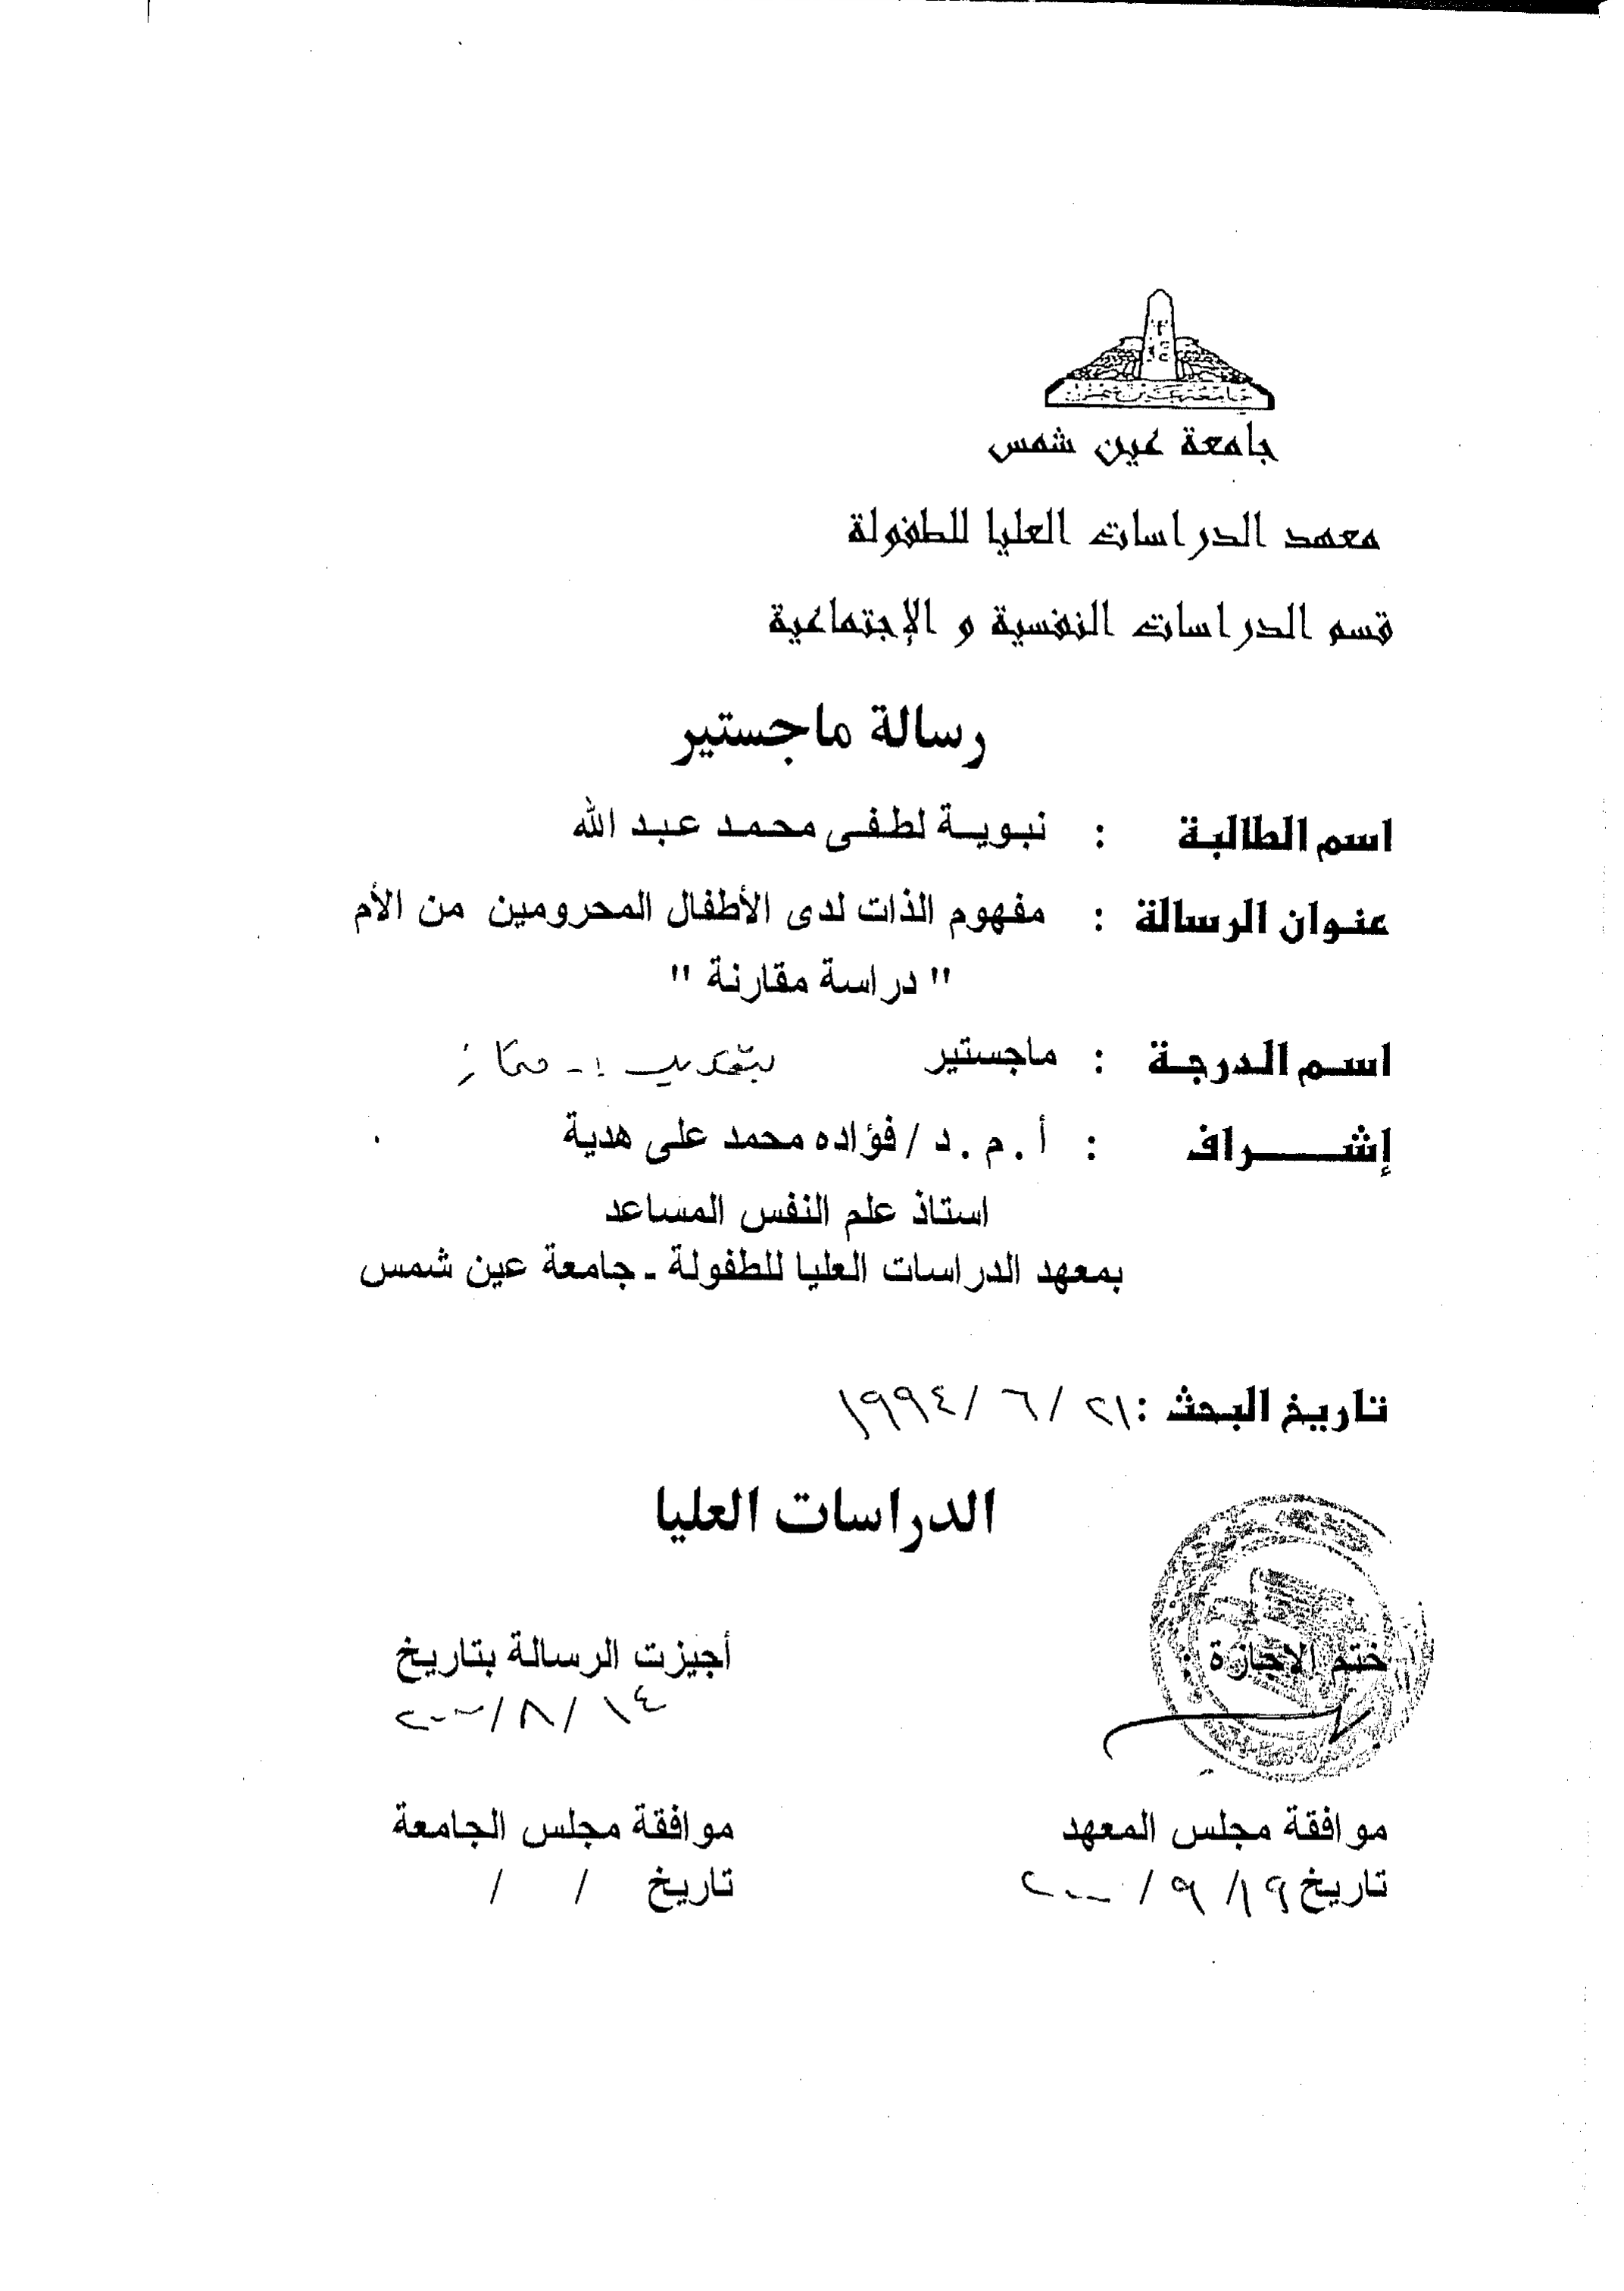 جامعة عين شمس
معهد الدراسات العليا للطفولة
قسم الدراسات النفسية و الإجتماعية
رسالة ماجستير
اسم الطالبة : نبوية لطفى محمد عبد الله
عنوان الرسالة : مفهوم الذات لدى الأطفال المحرومين من الأم
" دراسة مقارنة "
اسم الدرجة : ماجستير بتقدير :- ممتاز
إشراف : أ . م . د / فؤاده محمد على هدية
استاذ علم النفس المساعد
بمعهد الدراسات العليا للطفولة - جامعة عين شمس
تاريخ البحث : ٢١ / ٦ / ١٩٩٤
الدراسات العليا
ختم الاجازة : أجيزت الرسالة بتاريخ
١٤ / ٨ / ٢٠٠٠
موافقة مجلس المعهد موافقة مجلس الجامعة
تاريخ ١٩ / ٩ / ٢٠٠٠ تاريخ / /